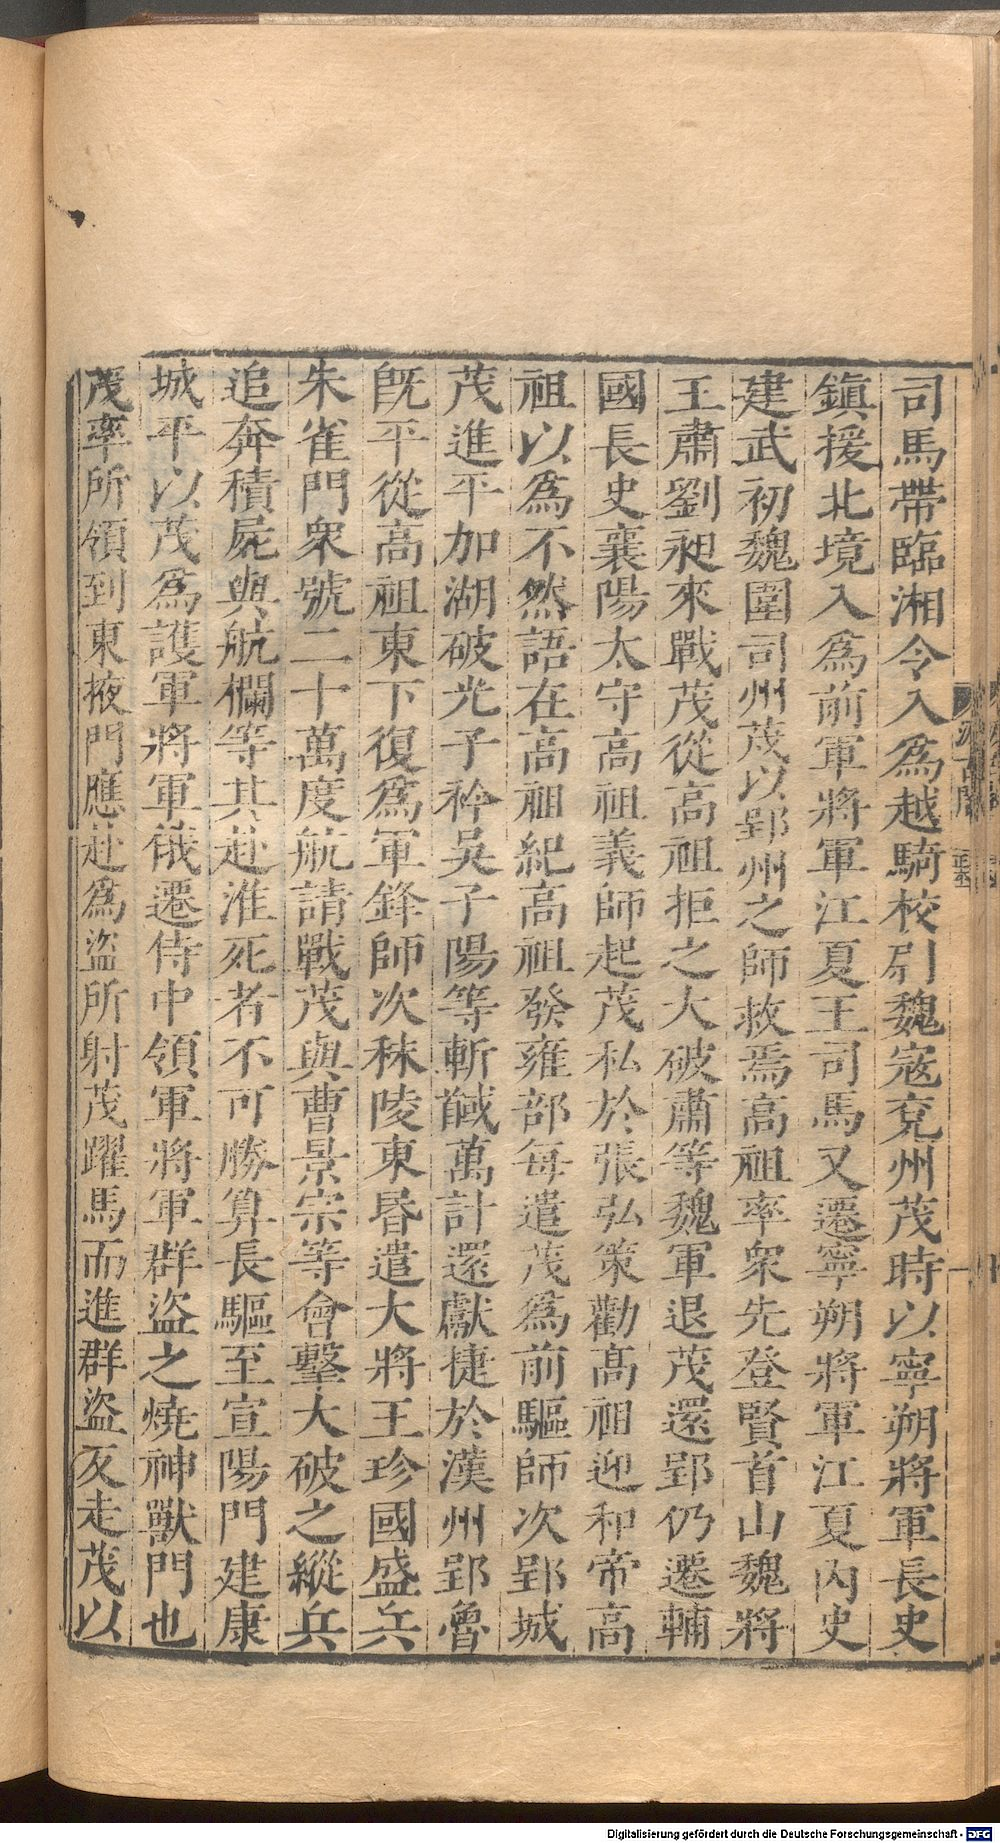 司馬帶臨湘令入爲越騎校尉魏寇兗州茂時以寧朔將軍長史
鎭援北境入爲前軍將軍江夏王司馬又遷寧朔將軍江夏內史
建武初魏圍司州茂以郢州之師救焉高祖率衆先登賢首山魏將
王肅劉昶來戰茂從高祖拒之大破肅等魏軍退茂還郢仍遷輔
國長史襄陽太守高祖義師起茂私於張弘策勸高祖迎和帝高
祖以爲不然語在高祖紀高祖發雍部每遣茂爲前驅師次郢城
茂進平加湖破光子衿吳子陽等斬馘萬計還獻捷於漢州郢魯
旣平從高祖東下復爲軍鋒師次秣陵東昬遣大將王珍國盛兵
朱雀門衆號二十萬度航請戰茂與曹景宗等會擊大破之縱兵
追奔積屍與航欄等其赴淮死者不可勝算長驅至宣陽門建康
城平以茂爲護軍將軍俄遷侍中領軍將軍群盜之燒神獸門也
茂率所領到東掖門應赴爲盜所射茂躍馬而進群盜反走茂以
Digitalisierung gefördert durch die Deutsche Forschungsgemeinschaft - DFG